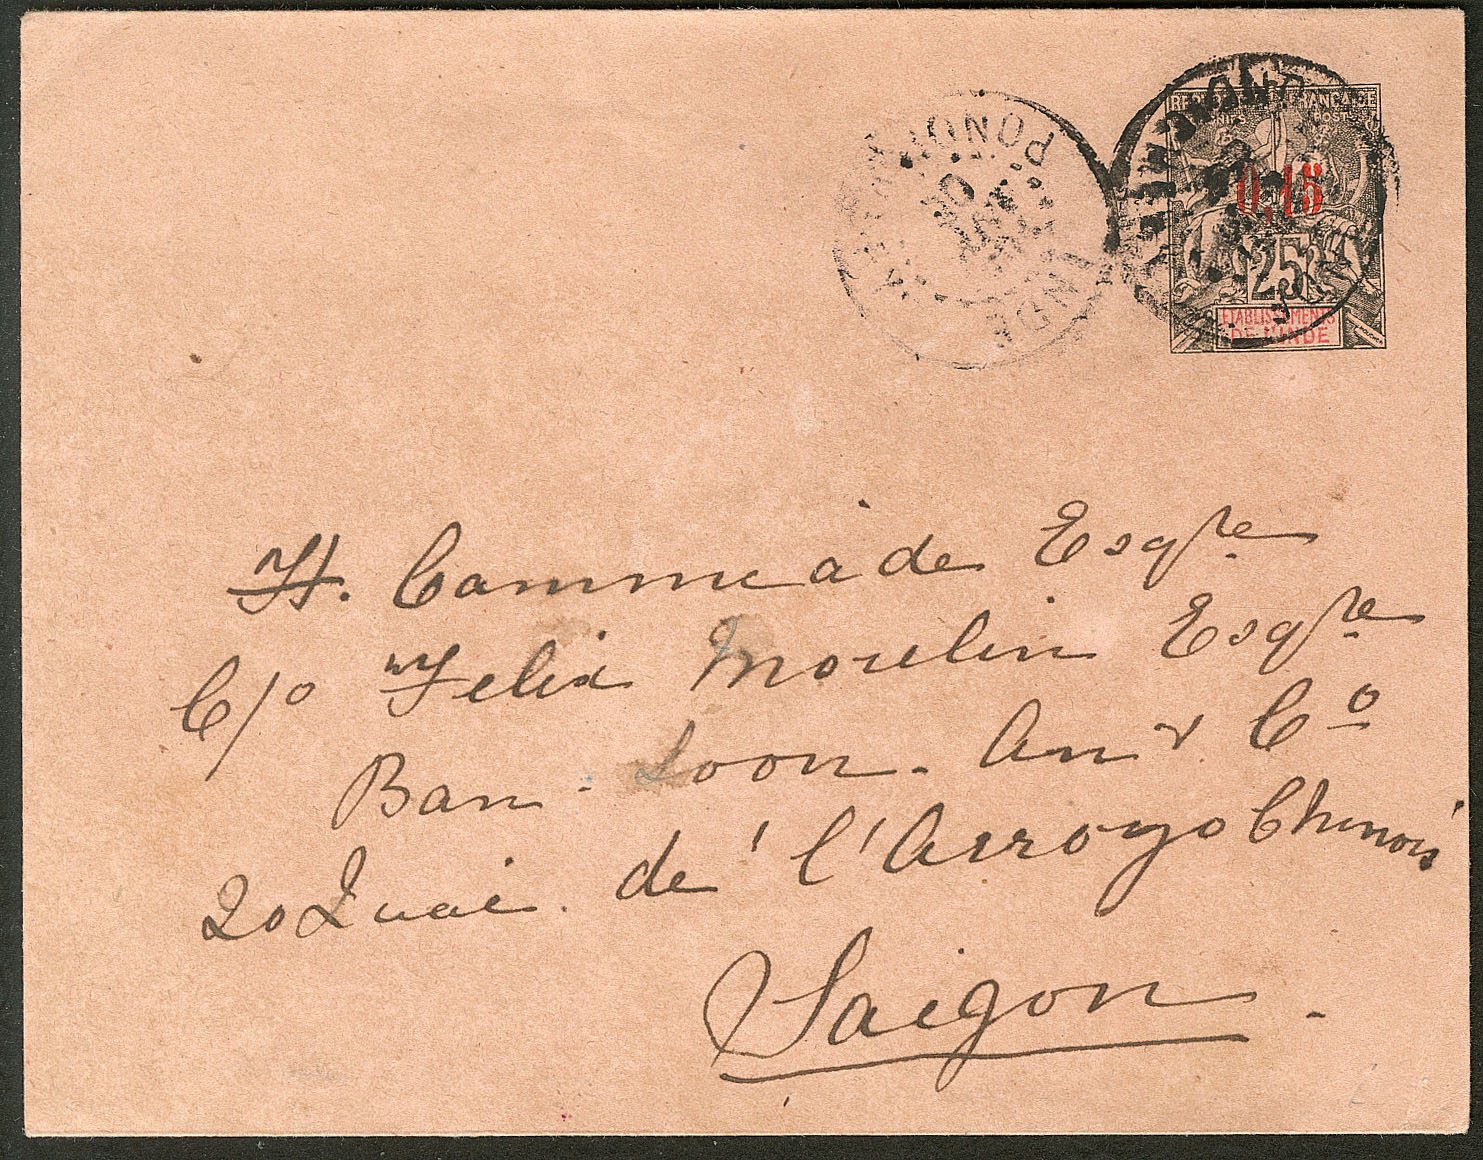 PONDICHERY
INDE
REPUBLIQUE FRANÇAISE
POSTES
0,15
25
ETABLISSEMENTS
DE L'INDE
H. Cammiade Esqre
C/o Felix Moulin Esqre
Ban-Soon-An & Co
20 Quai de l'Arroyo Chinois
Saigon.